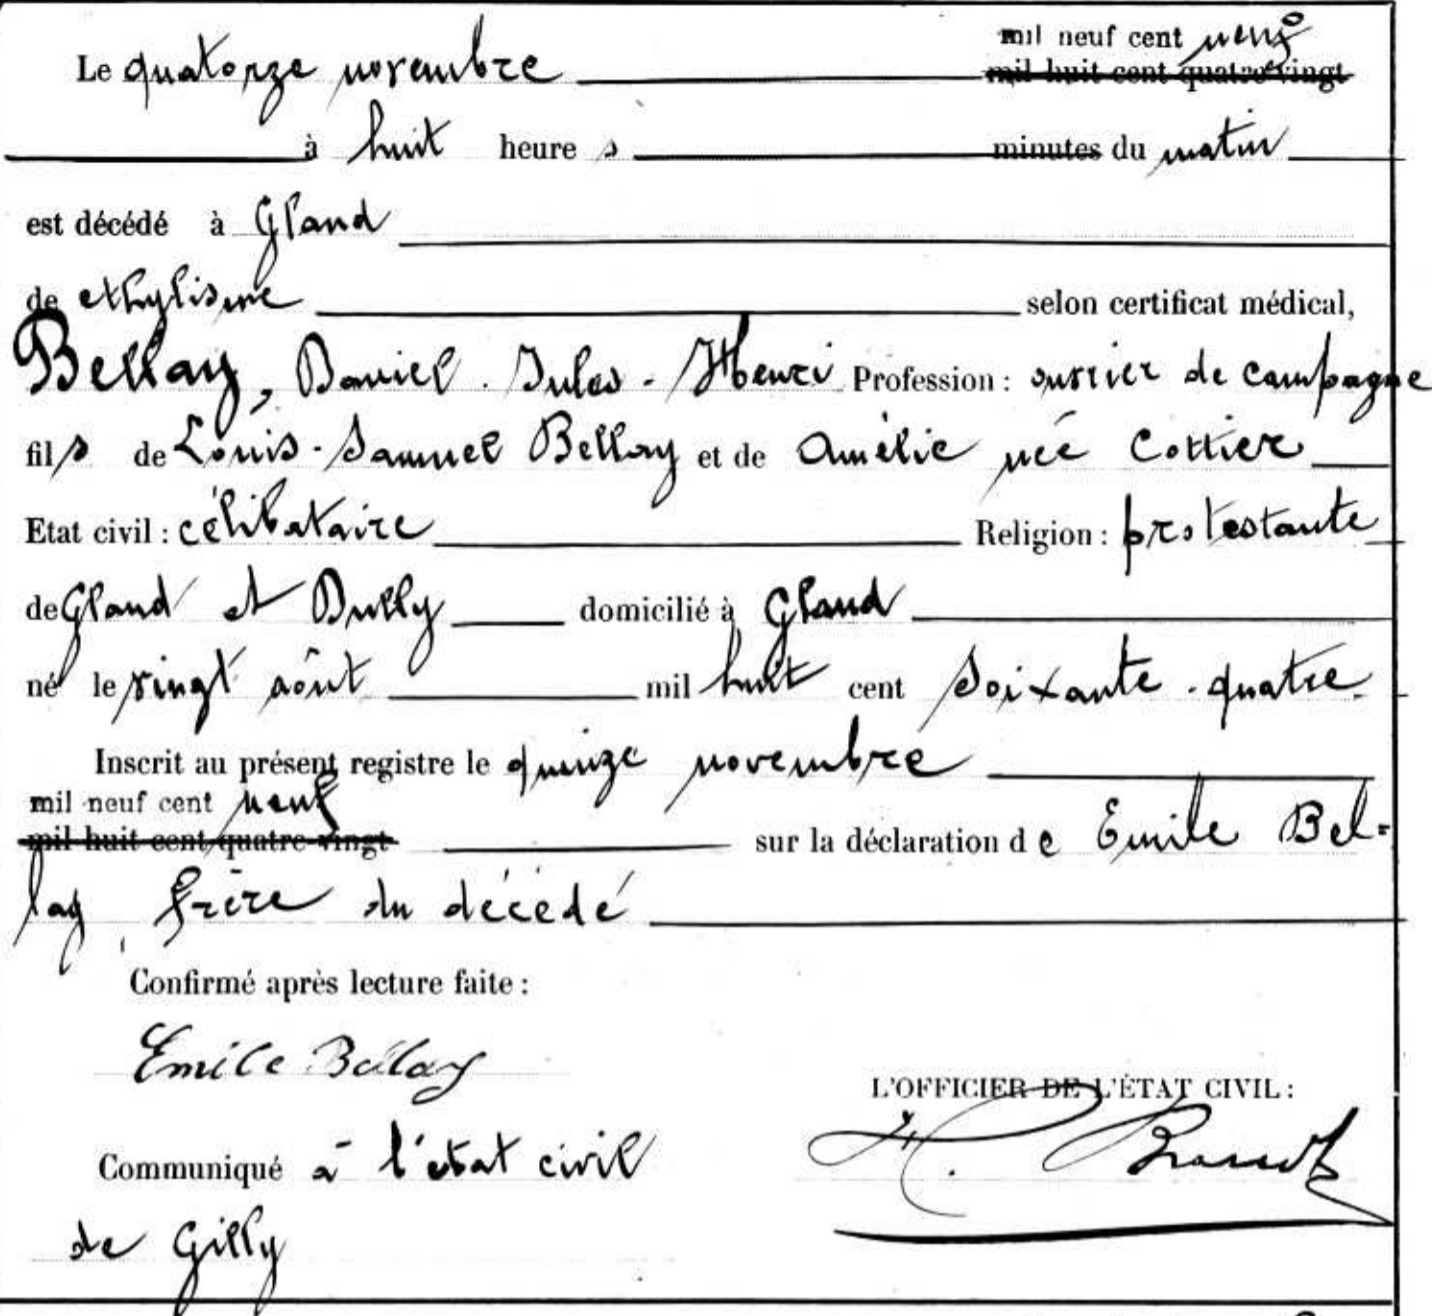 mil neuf cent neuf
Le quatorze novembre mil huit cent quatre-vingt
à huit heures minutes du matin
est décédé à Gland
de ethylisme selon certificat médical,
Bellay, Daniel-Jules-Henri Profession: ouvrier de campagne
fils de Louis-Samuel Bellay et de Amélie née Cottier
Etat civil: célibataire Religion: protestante
de Gland et Dully domicilié à Gland
né le vingt août mil huit cent soixante-quatre
Inscrit au présent registre le quinze novembre
mil neuf cent neuf
mil huit cent quatre-vingt sur la déclaration de Emile Bel=
lay, frère du décédé
Confirmé après lecture faite:
Emile Bellay
L'OFFICIER DE L'ÉTAT CIVIL:
Communiqué à l'état civil
de Gilly